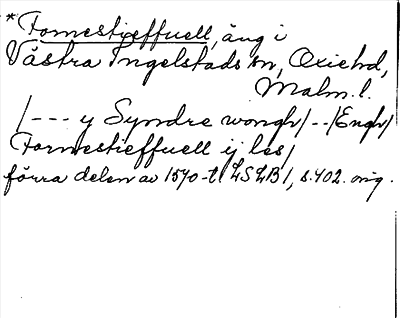 *Tornestieffuell, äng i
Västra Ingelstads sn, Oxie hd,
Malm. l.
/--- y Syndre wongh/--/Engh/
Tornestieffuell ij les/
förra delen av 1570-t. LSLB 1, s. 402. orig.